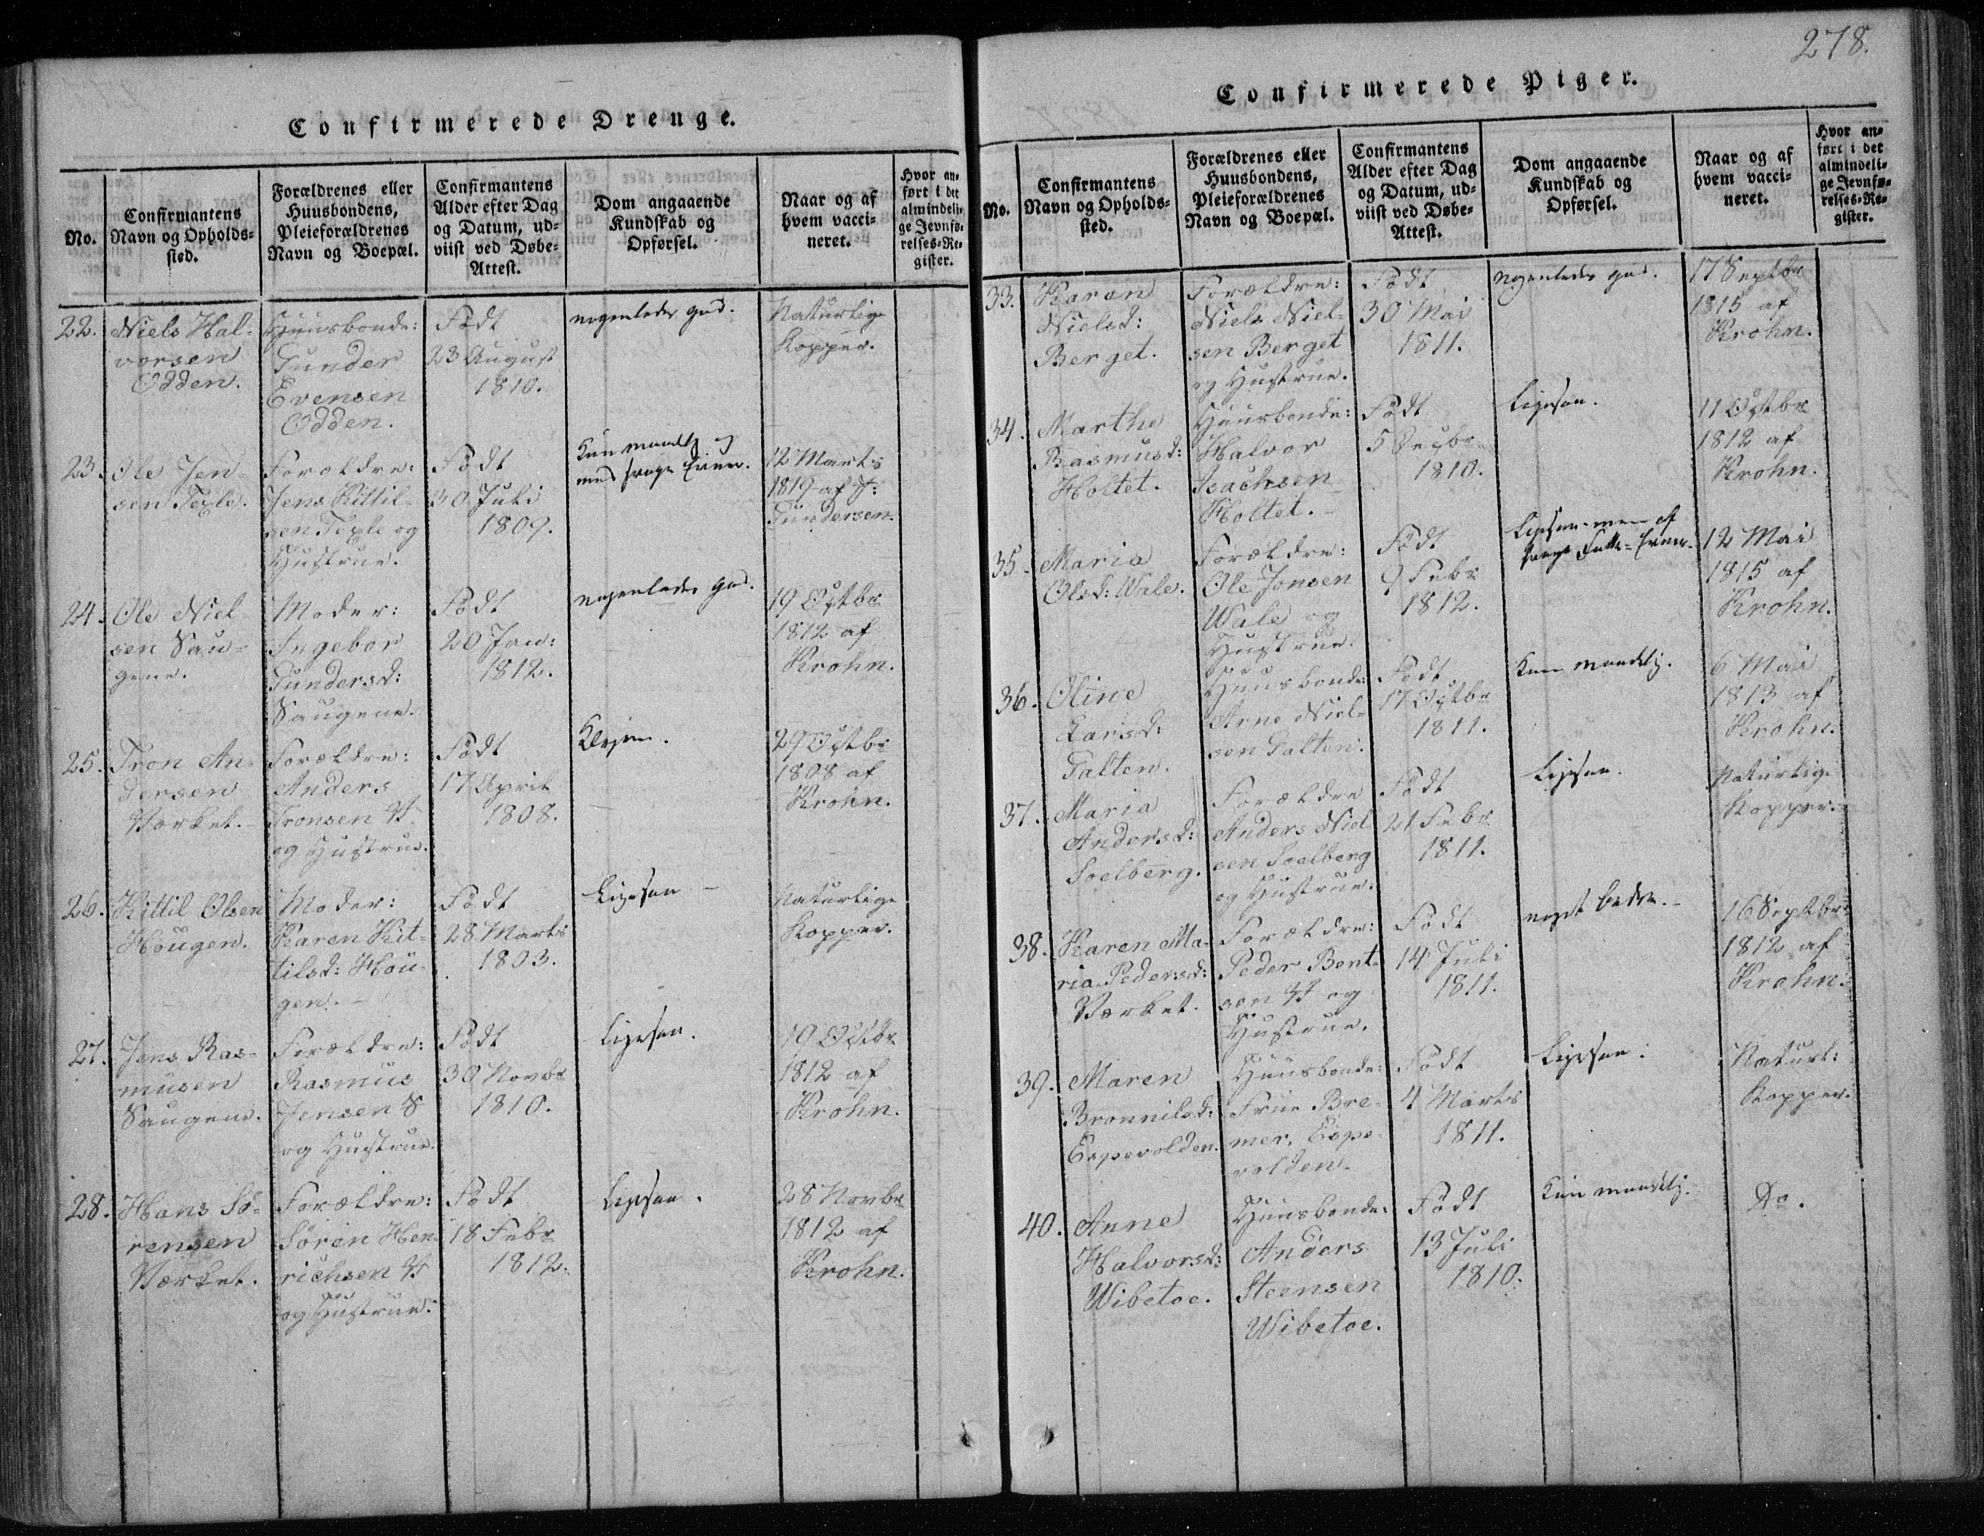 278.
Confirmerede Drenge.
No.
Confirmantens
Navn og Opholds-
sted.
Forældrenes eller
Huusbondens,
Pleieforældrenes
Navn og Boepæl.
Confirmantens
Alder efter Dag
og Datum, ud-
viist ved Døbe-
Attest.
Dom angaaende
Kundskab og
Opførsel.
Naar og af
hvem vacci-
neret.
Hvor an-
ført i det
almindeli-
ge Jevnfø-
relses-Re-
gister.
22.
Niels Hal-
vorsen
Odden.
Huusbonde:
Gunder
Evensen
Odden.
Födt
23 August
1810.
nogenledes god.
Naturlige
Kopper.
23.
Ole Jen-
sen Texle.
Forældre:
Jens Kittil-
sen Texle og
Hustrue.
Födt
30 Juli
1809.
Kun maadelig og
med svage Evner.
12 Marts
1819 af
Gundersen.
24.
Ole Niel-
sen Sau-
gene.
Moder:
Ingebor
Gundersd:
Saugene.
Födt
20 Jan:
1812.
nogenledes god.
19 Octbr
1812 af
Krohn.
25.
Tron An-
dersen
Værket.
Forældre:
Anders
Tronsen V.
og Hustrue.
Födt
17 April
1808.
29 Octbr
1808 af
Krohn.
26.
Kittil Olsen
Hougen.
Moder:
Karen Kit-
tilsd: Hou-
gen.
Födt
28 Marts
1803.
Ligesaa
Naturlige
Kopper.
27.
Jens Ras-
musen
Saugene.
Forældre:
Rasmus
Jensen S
og Hustrue.
Födt
30 Novbr
1810.
Ligesaa.
19 Octbr
1812 af
Krohn.
28.
Hans Sö-
rensen
Værket.
Forældre:
Sören Hen-
richsen V
og Hustrue.
Födt
18 Febr
1812.
Ligesaa.
28 Novbr
1812 af
Krohn.
Confirmerede Piger.
No.
Confirmantens
Navn og Opholds-
sted.
Forældrenes eller
Huusbondens,
Pleieforældrenes
Navn og Boepæl.
Confirmantens
Alder efter Dag
og Datum, ud-
viist ved Døbe-
Attest.
Dom angaaende
Kundskab og
Opførsel.
Naar og af
hvem vacci-
neret.
Hvor an-
ført i det
almindeli-
ge Jevnfø-
relses-Re-
gister.
33.
Karen
Nielsd:
Berget.
Forældre:
Niels Niel-
sen Berget
og Hustrue.
Födt
30 Mai
1811.
nogenledes god.
17 Septbr
1815 af
Krohn.
34.
Marthe
Rasmusd:
Holtet.
Huusbonde:
Halvor
Isachsen
Holtet.
Födt
5 Decbr
1810.
Ligesaa.
11 Octbr
1812 af
Krohn.
35.
Maria
Olsd: Wale.
Forældre:
Ole Jonsen
Wale og
Hustrue.
Födt
9 Febr
1812.
Ligesaa men af
svage Evner.
12 Mai
1815 af
Krohn.
36.
Oline
Larsd:
Galten.
Huusbonde:
Arne Niel-
sen Galten.
Födt
17 Octbr
1811.
Kun maadelig.
6 Mai
1813 af
Krohn.
37.
Maria
Andersd:
Soelberg.
Forældre
Anders Niel-
sen Soelberg
og Hustrue.
Födt
21 Febr
1811.
Ligesaa.
Naturlige
Kopper.
38.
Karen Ma-
ria Pedersd:
Værket.
Forældre:
Peder Bent-
sen V og
Hustrue.
Födt
14 Juli
1811.
noget bedre.
16 Septbr
1812 af
Krohn.
39.
Maren
Bronnilsd:
Espevolden.
Huusbonde:
Frue Bre-
mer, Espe-
volden.
Födt
4 Marts
1811.
Ligesaa.
Naturl:
Kopper.
40.
Anne
Halvorsd:
Wibetoe.
Huusbonde:
Anders
Steensen
Wibetoe.
Födt
13 Juli
1810.
Kun maadelig.
Do.